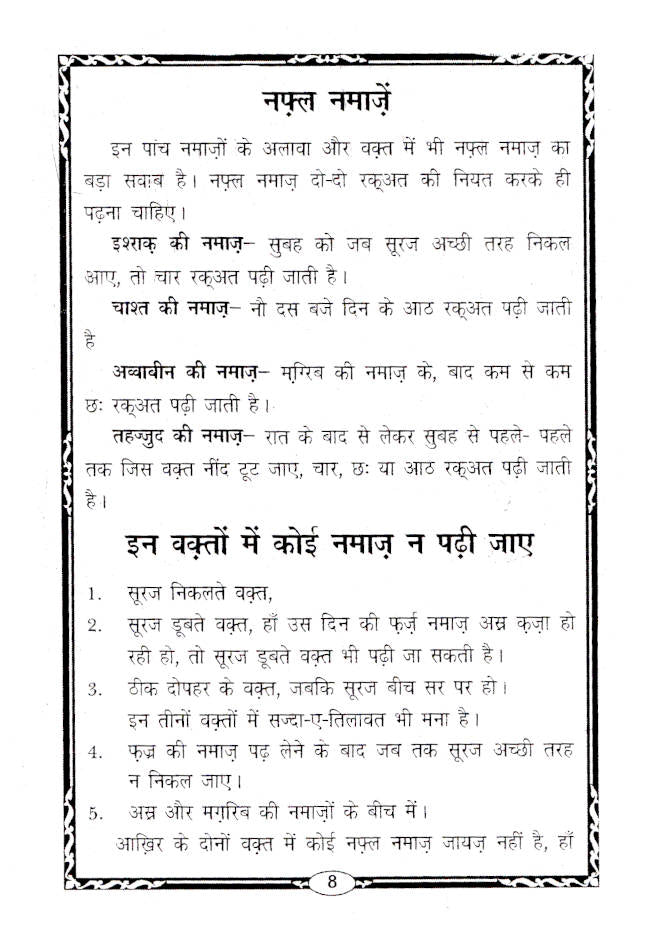 नफ़्ल नमाज़ें
इन पांच नमाज़ों के अलावा और वक़्त में भी नफ़्ल नमाज़ का
बड़ा सवाब है। नफ़्ल नमाज़ दो-दो रकअ़त की नियत करके ही
पढ़ना चाहिए।
इश्राक़ की नमाज़– सुबह को जब सूरज अच्छी तरह निकल
आए, तो चार रक्अत पढ़ी जाती है।
चाश्त की नमाज़– नौ दस बजे दिन के आठ रक्अत पढ़ी जाती
है
अव्वाबीन की नमाज़– मग़्रिब की नमाज़ के, बाद कम से कम
छः रक्अत पढ़ी जाती है।
तहज्जुद की नमाज़– रात के बाद से लेकर सुबह से पहले- पहले
तक जिस वक़्त नींद टूट जाए, चार, छः या आठ रक्अत पढ़ी जाती
है।
इन वक़्तों में कोई नमाज़ न पढ़ी जाए
1. सूरज निकलते वक़्त,
2. सूरज डूबते वक़्त, हाँ उस दिन की फ़र्ज़ नमाज़ अस्र क़ज़ा हो
रही हो, तो सूरज डूबते वक़्त भी पढ़ी जा सकती है।
3. ठीक दोपहर के वक़्त, जबकि सूरज बीच सर पर हो।
इन तीनों वक़्तों में सज्दा-ए-तिलावत भी मना है।
4. फ़ज्र की नमाज़ पढ़ लेने के बाद जब तक सूरज अच्छी तरह
न निकल जाए।
5. अस्र और मग़रिब की नमाज़ों के बीच में।
आख़िर के दोनों वक़्त में कोई नफ़्ल नमाज़ जायज़ नहीं है, हाँ
8